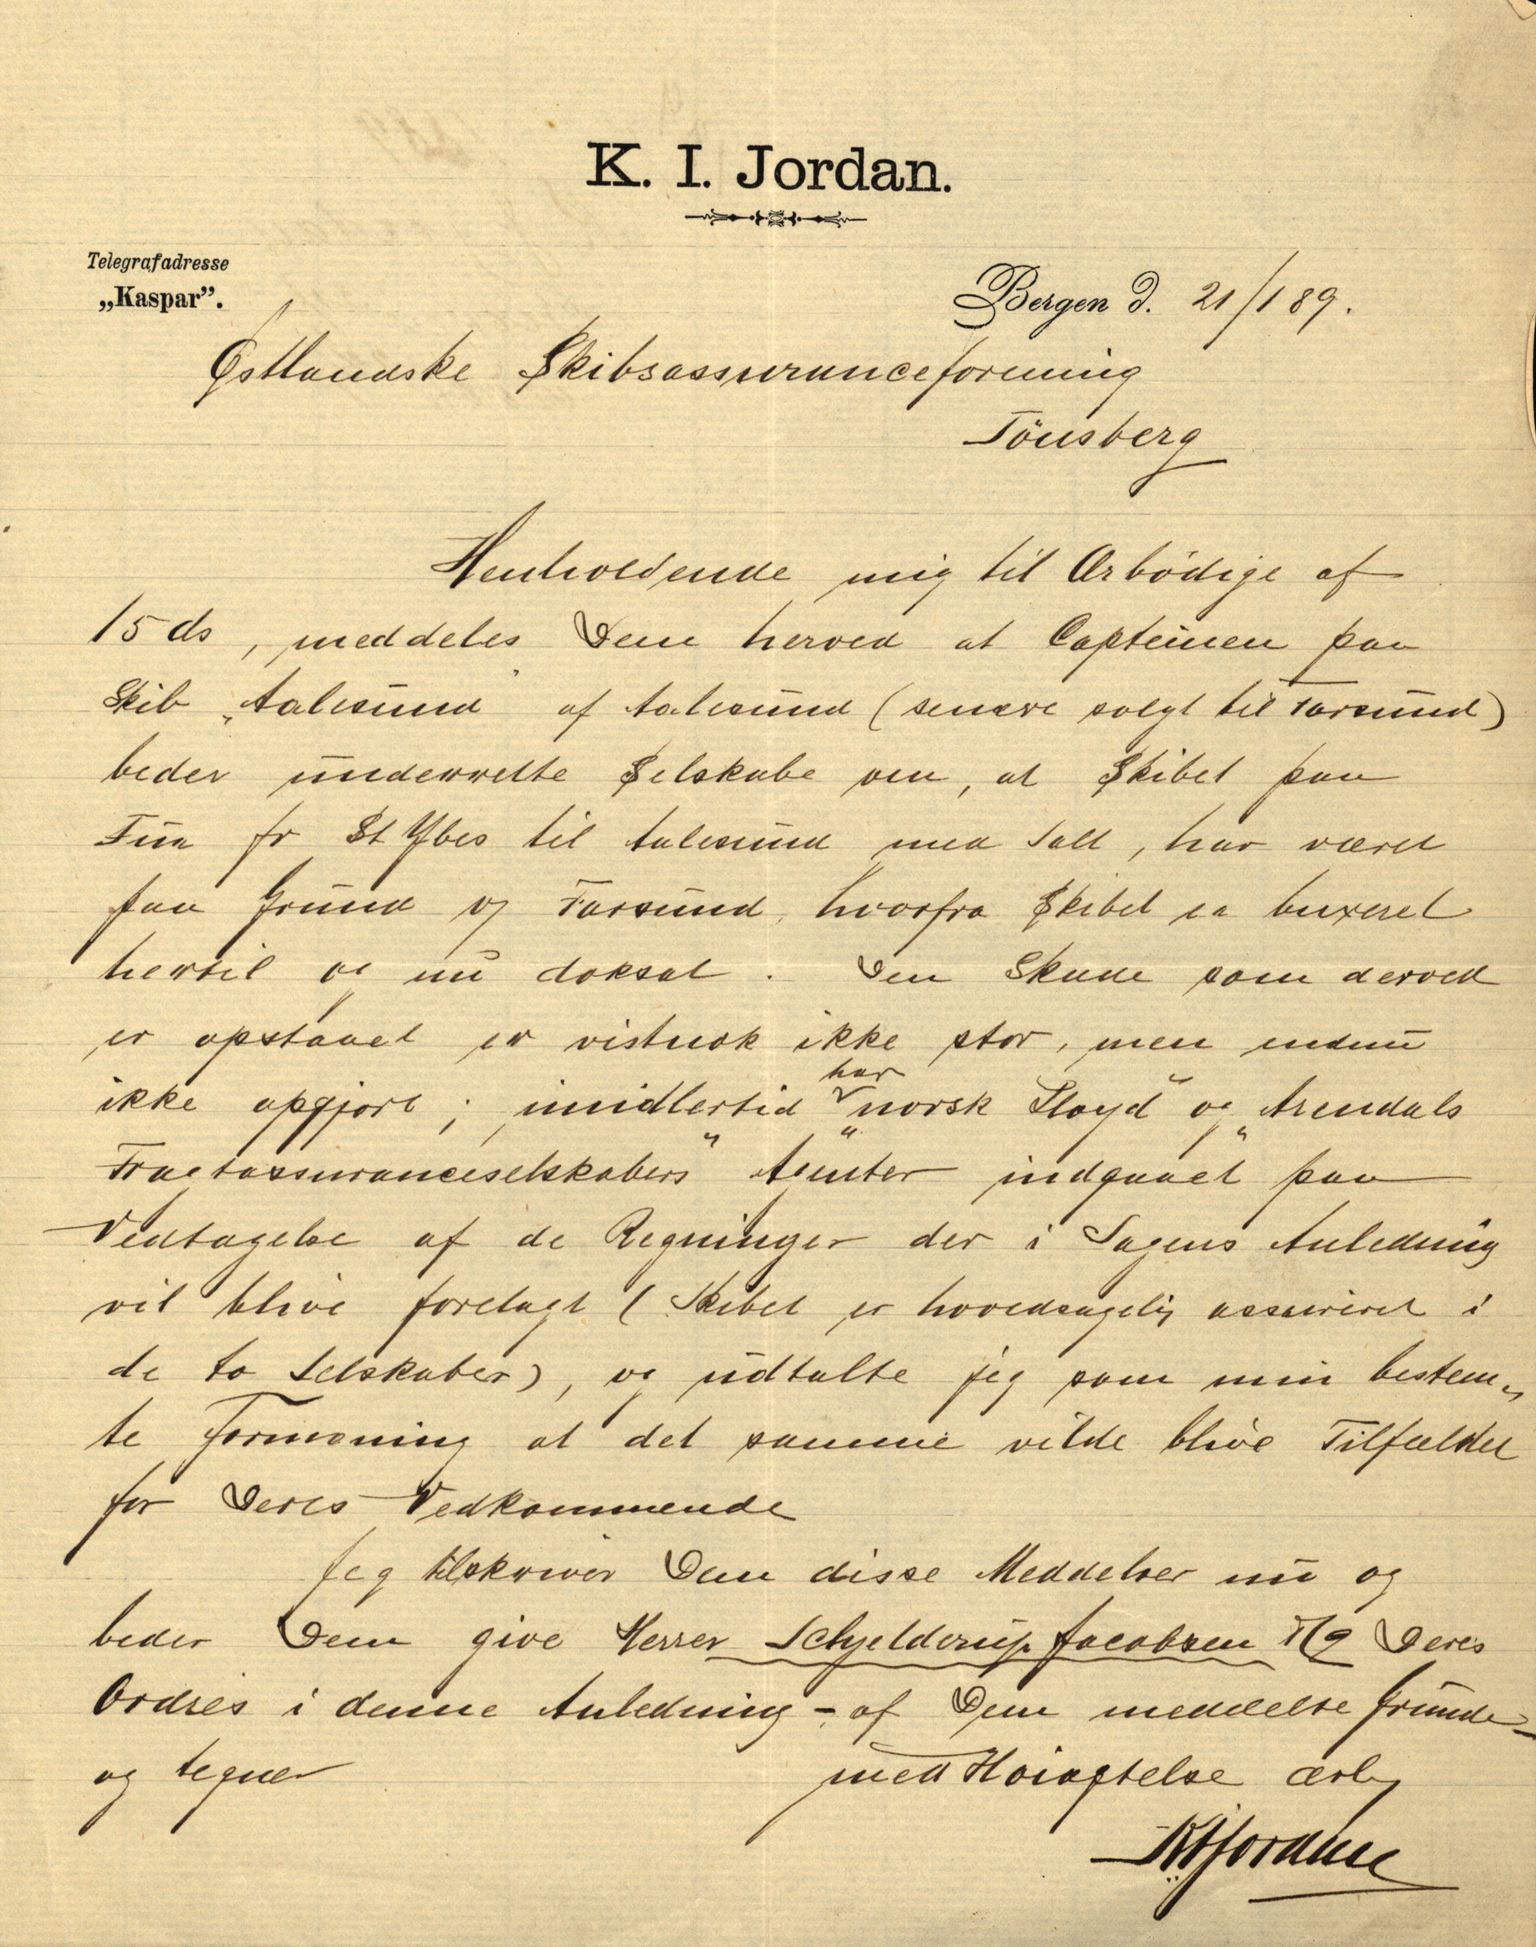 K. I. Jordan.
Telegrafadresse
„Kaspar”.
Bergen d. 21/1 89.
Østlandske Skibsassuranceforening
Tönsberg
Henholdende mig til Ærbödige af
15 ds, meddeles Dem herved at Capteinen paa
Skib „Aalesund" af Aalesund (senere solgt til Farsund)
beder underrette Selskabe om, at Skibet paa
Tur fr St Ybes til Aalesund med Salt, har været
paa Grund v Farsund, hvorfra Skibet er buxeret
hertil og nu doksat. Den Skade som derved
er opstaaet er vistnok ikke stor, men endnu
ikke opgjort; imidlertid har „norsk Lloyd" og „Arendals
Fragtassuranceselskabers" Agenter indgaaet paa
Vedtagelse af de Regninger der i Sagens Anledning
vil blive foretagt (Skibet er hovedsagelig assureret i
de to Selskaber), og udtalte jeg som min bestem-
te Formening at det samme vilde blive Tilfældet
for Deres Vedkommende
Jeg tilskriver Dem disse Meddelser nu og
beder Dem give Herrer Schjelderup Jacobsen & Co Deres
Ordres i denne Anledning - af Dem meddelte Grunde -
og tegner med Høiagtelse ærb
K I Jordan